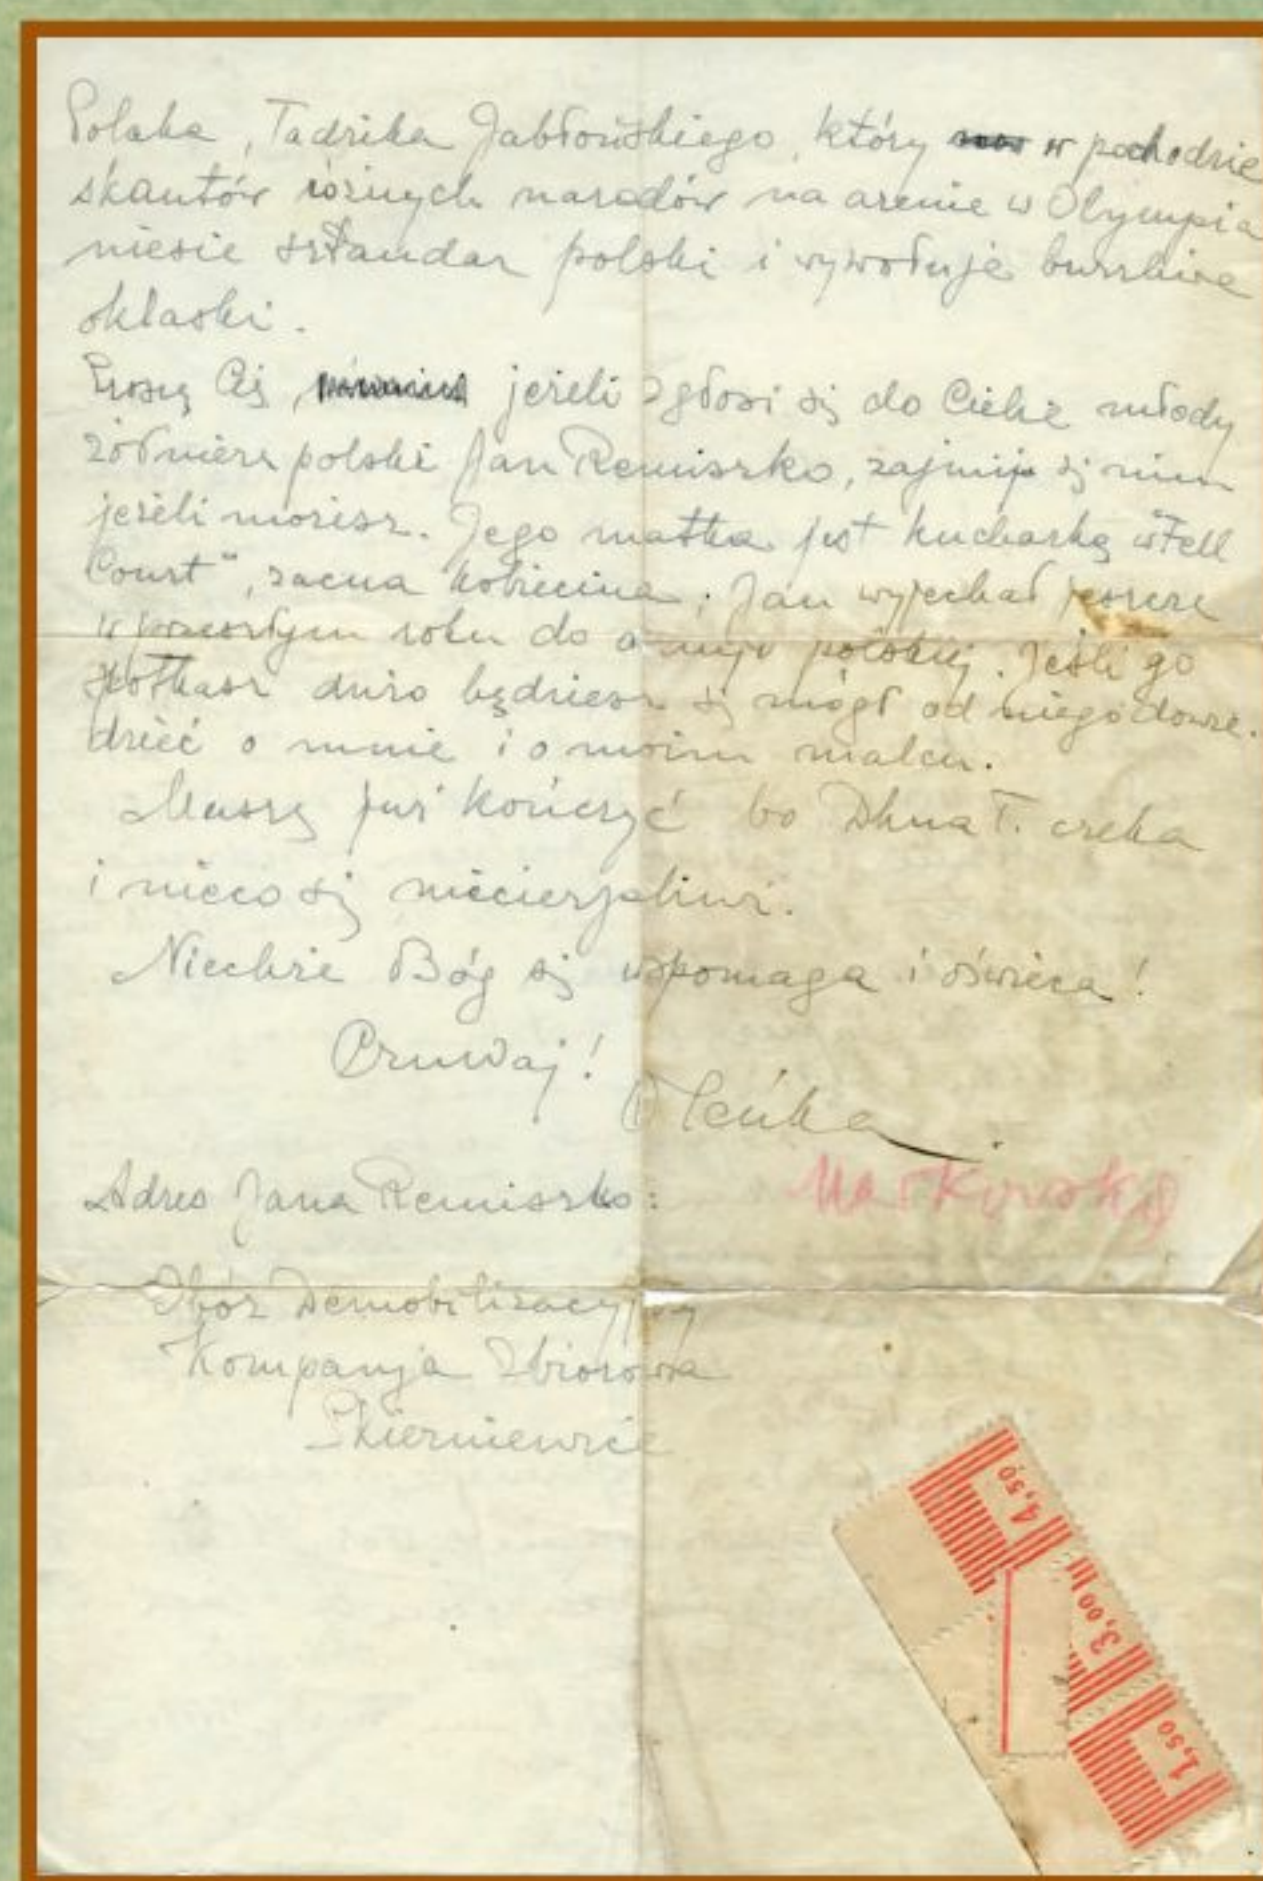 Polaka, Tadzika Jabłońskiego, który w pochodzie
skautów różnych narodów na arenie w Olympia
niesie sztandar polski i wywołuje burzliwe
oklaski.
Proszę Cię, jeżeli zgłosi się do Ciebie młody
żołnierz polski Jan Remiszko, zajmij się nim
jeżeli możesz. Jego matka jest kucharką w "Fell
Court", zacna kobiecina; Jan wyjechał jeszcze
w przeszłym roku do armji polskiej. Jeśli go
spotkasz dużo będziesz się mógł od niego dowie-
dzieć o mnie i o moim malcu.
Muszę już kończyć bo Dhna T. czeka
i nieco się niecierpliwi.
Niechże Bóg się wspomaga i oświeca!
Czuwaj!
Oleńka
Małkowska
Adres Jana Remiszko:
Obóz Demobilizacyjny
Kompanja Zbiorowa
Skierniewice
4,50
3,00
1,50